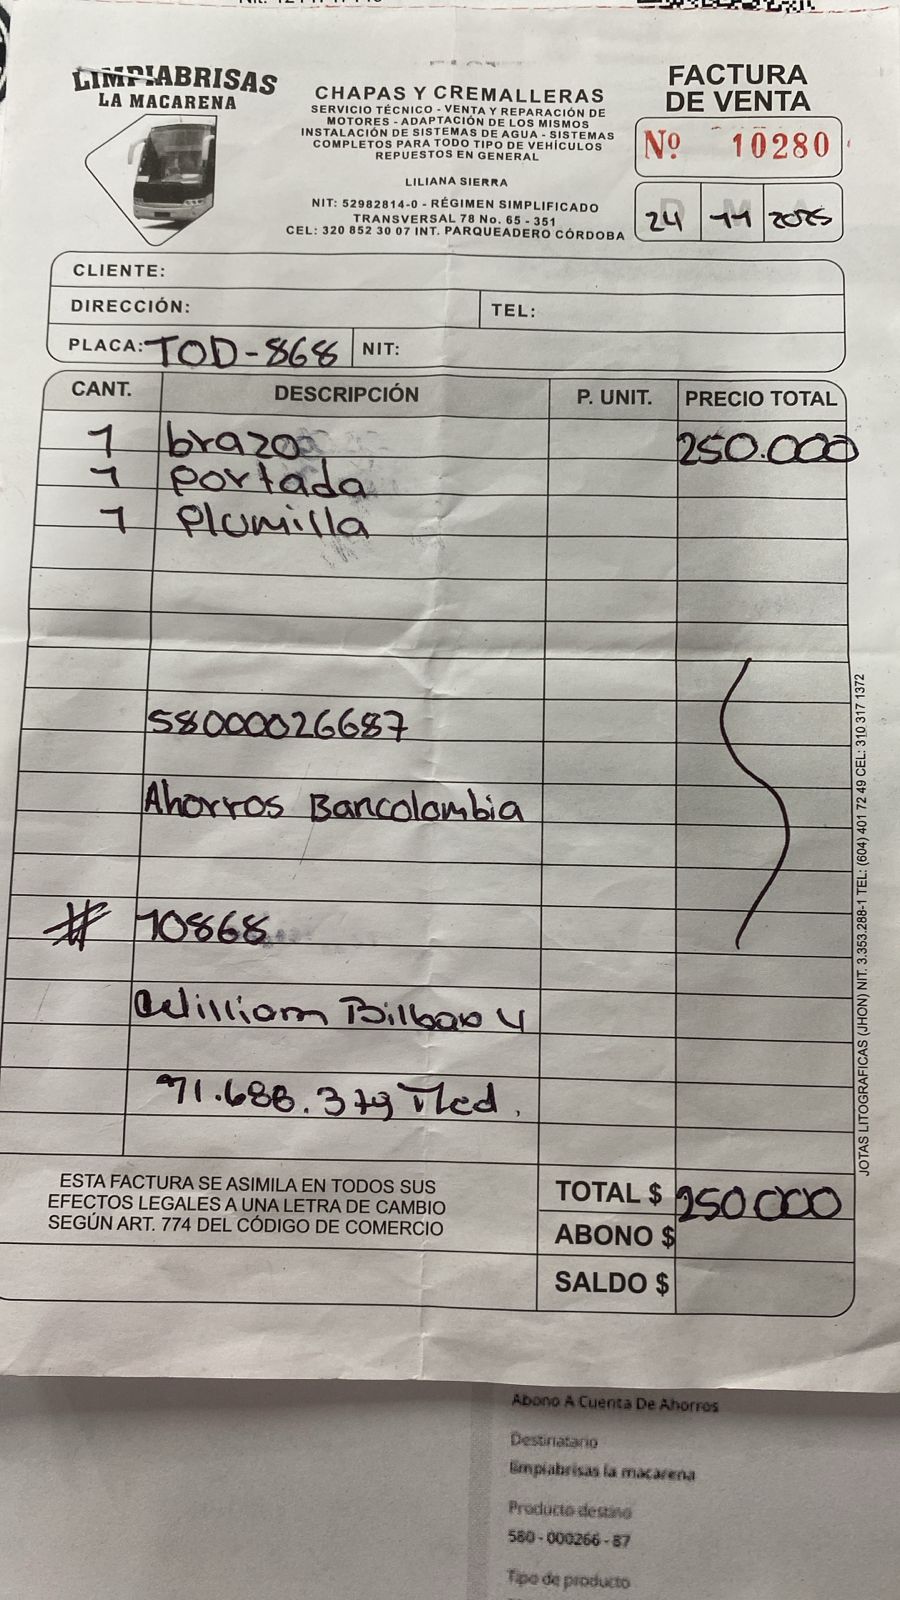 LIMPIABRISAS
LA MACARENA
CHAPAS Y CREMALLERAS
SERVICIO TÉCNICO - VENTA Y REPARACIÓN DE
MOTORES - ADAPTACIÓN DE LOS MISMOS
INSTALACIÓN DE SISTEMAS DE AGUA - SISTEMAS
COMPLETOS PARA TODO TIPO DE VEHÍCULOS
REPUESTOS EN GENERAL
LILIANA SIERRA
NIT: 52982814-0 - RÉGIMEN SIMPLIFICADO
TRANSVERSAL 78 No. 65 - 351
CEL: 320 852 30 07 INT. PARQUEADERO CÓRDOBA
FACTURA
DE VENTA
Nº 10280
D M A
24 11 2025
CLIENTE:
DIRECCIÓN: TEL:
PLACA: TOD-868 NIT:
CANT. DESCRIPCIÓN P. UNIT. PRECIO TOTAL
1 brazo 250.000
1 portada
1 plumilla
58000026687
Ahorros Bancolombia
# 10868
William Bilbao U
71.688.379 Med.
ESTA FACTURA SE ASIMILA EN TODOS SUS
EFECTOS LEGALES A UNA LETRA DE CAMBIO
SEGÚN ART. 774 DEL CÓDIGO DE COMERCIO
TOTAL $ 250000
ABONO $
SALDO $
JOTAS LITOGRAFICAS (JHON) NIT. 3.353.288-1 TEL: (604) 401 72 49 CEL: 310 317 1372
Abono A Cuenta De Ahorros
Destinatario
limpiabrisas la macarena
Producto destino
580 - 000266 - 87
Tipo de producto